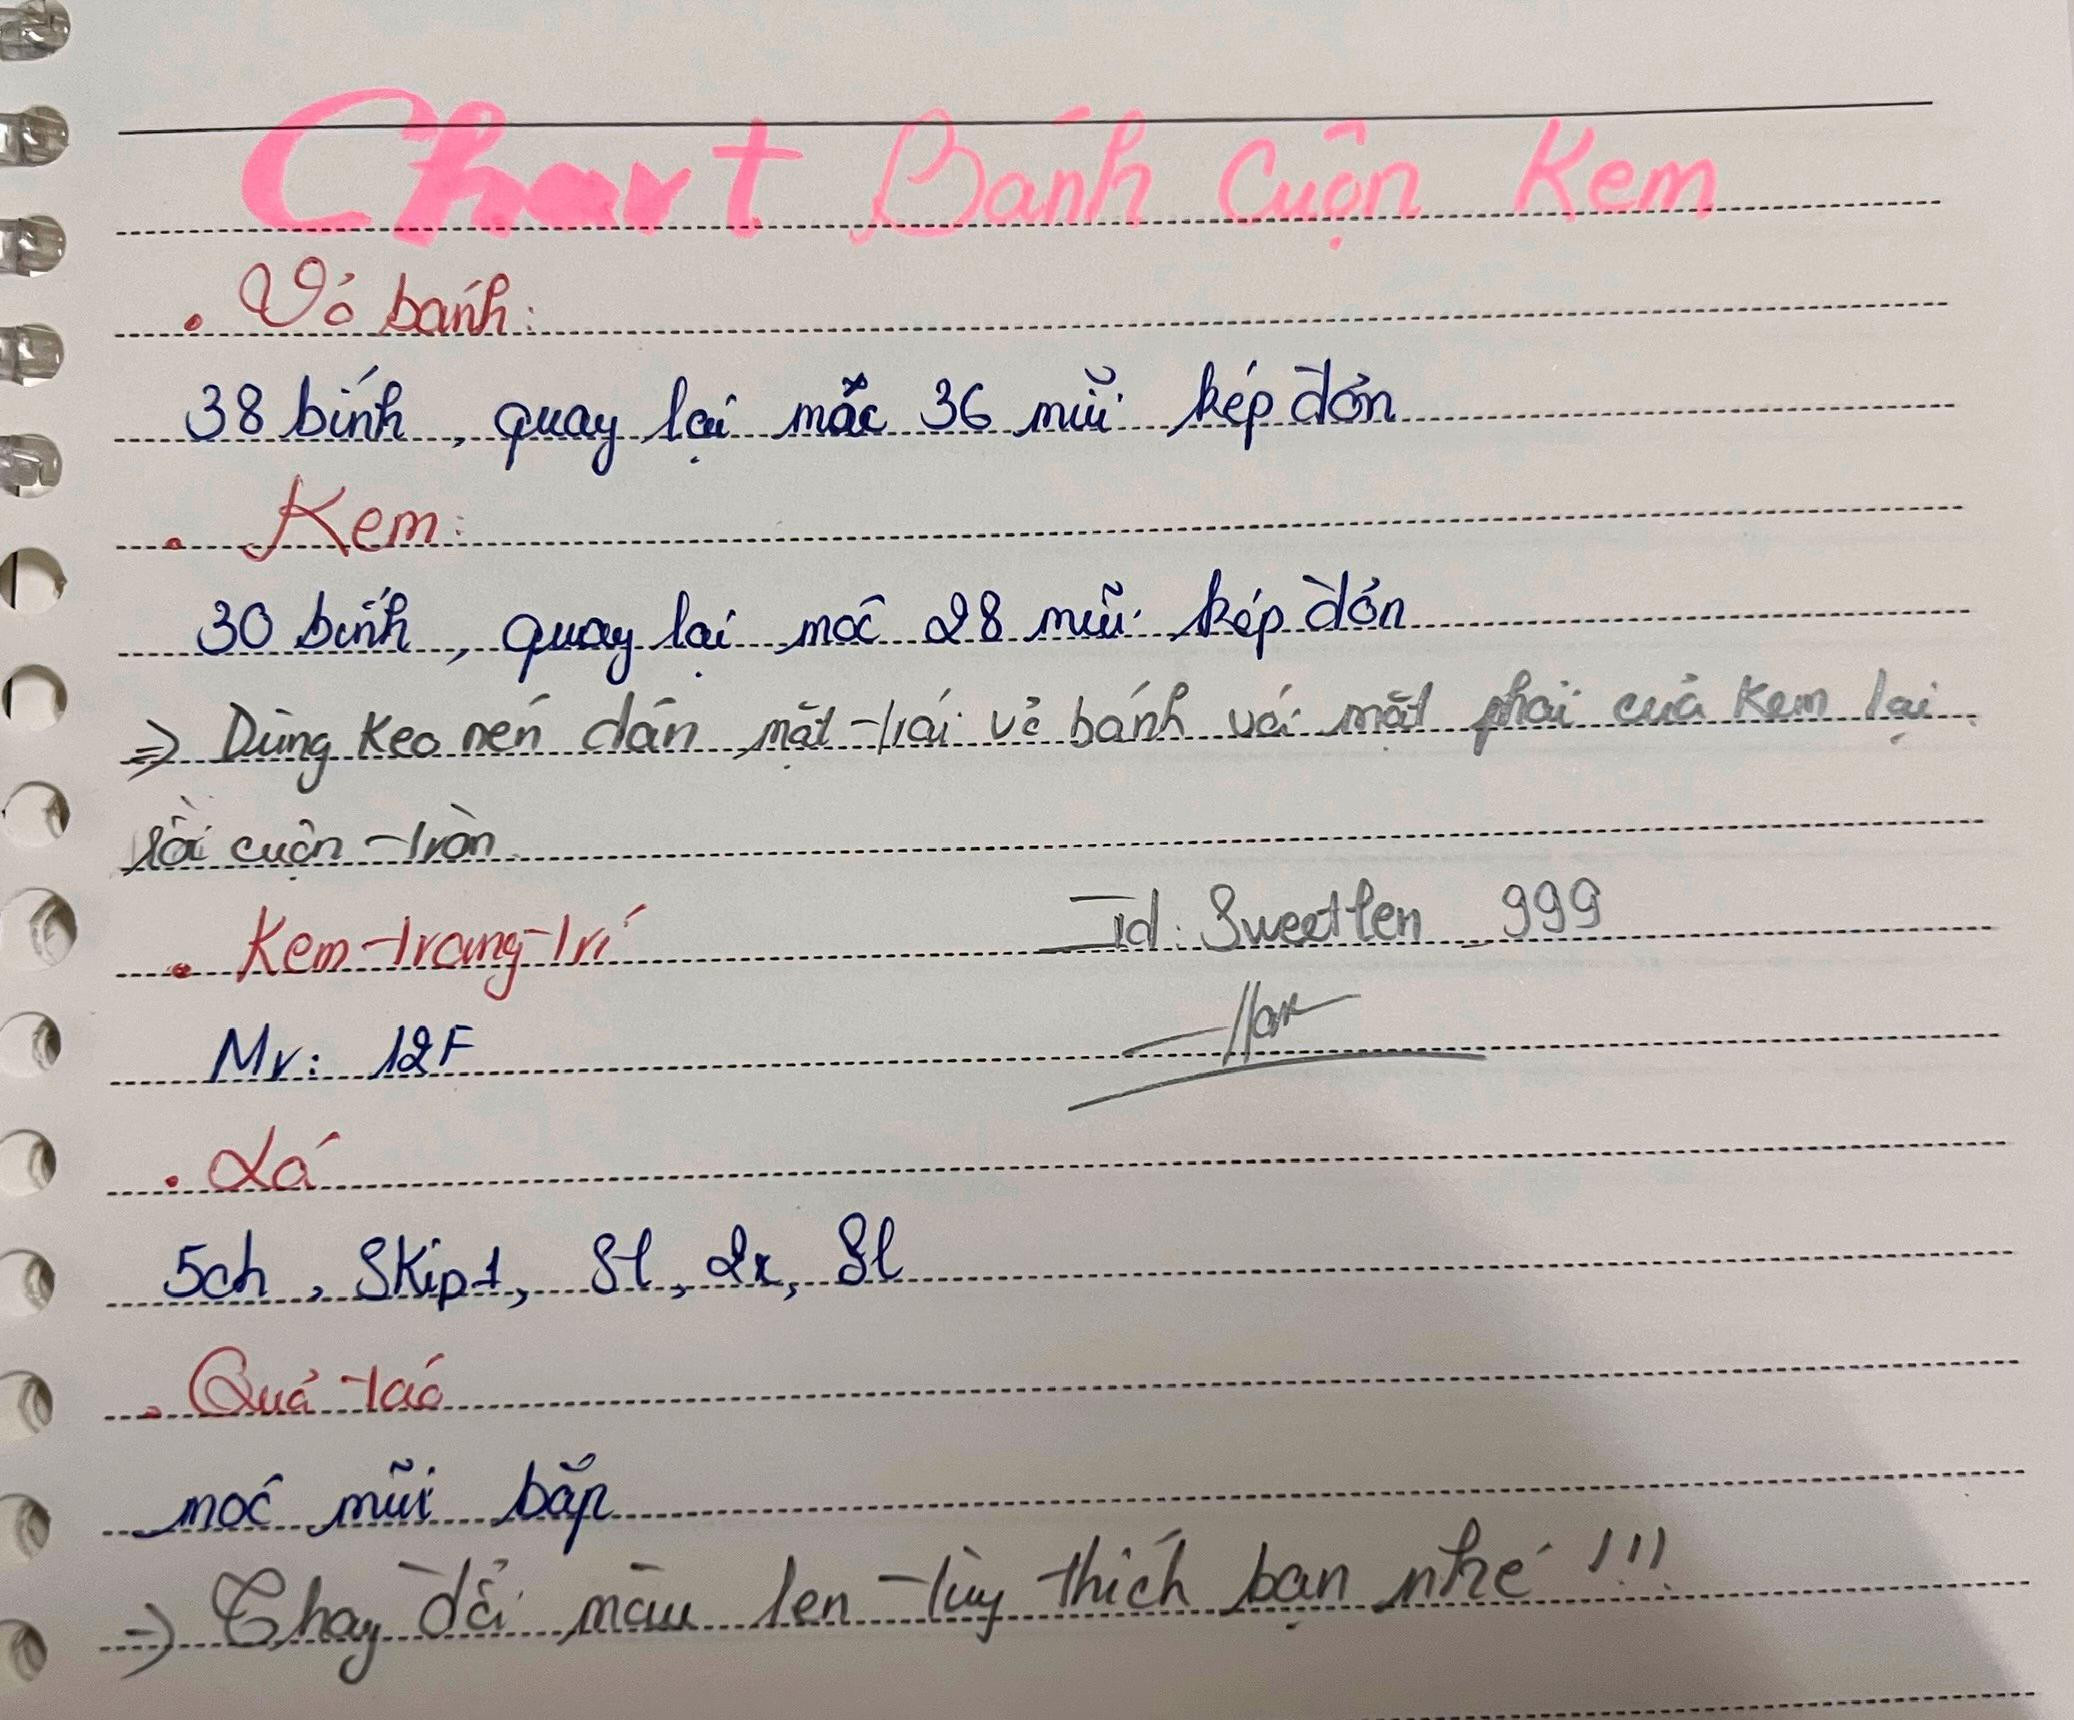 Chart Bánh Cuộn Kem
. Vỏ bánh:
38 bính, quay lại mốc 36 mũi kép đơn
. Kem:
30 bính, quay lại móc 28 mũi kép đơn
=> Dùng keo nến dán mặt trái vỏ bánh với mặt phải của kem lại
rồi cuộn tròn
. Kem trang trí
Id: Sweetlen_999
Mr: 12F
. Lá
5ch, Skip1, Sl, 2x, Sl
. Quả táo
móc mũi bắp
=> Thay đổi màu len tùy thích bạn nhé !!!